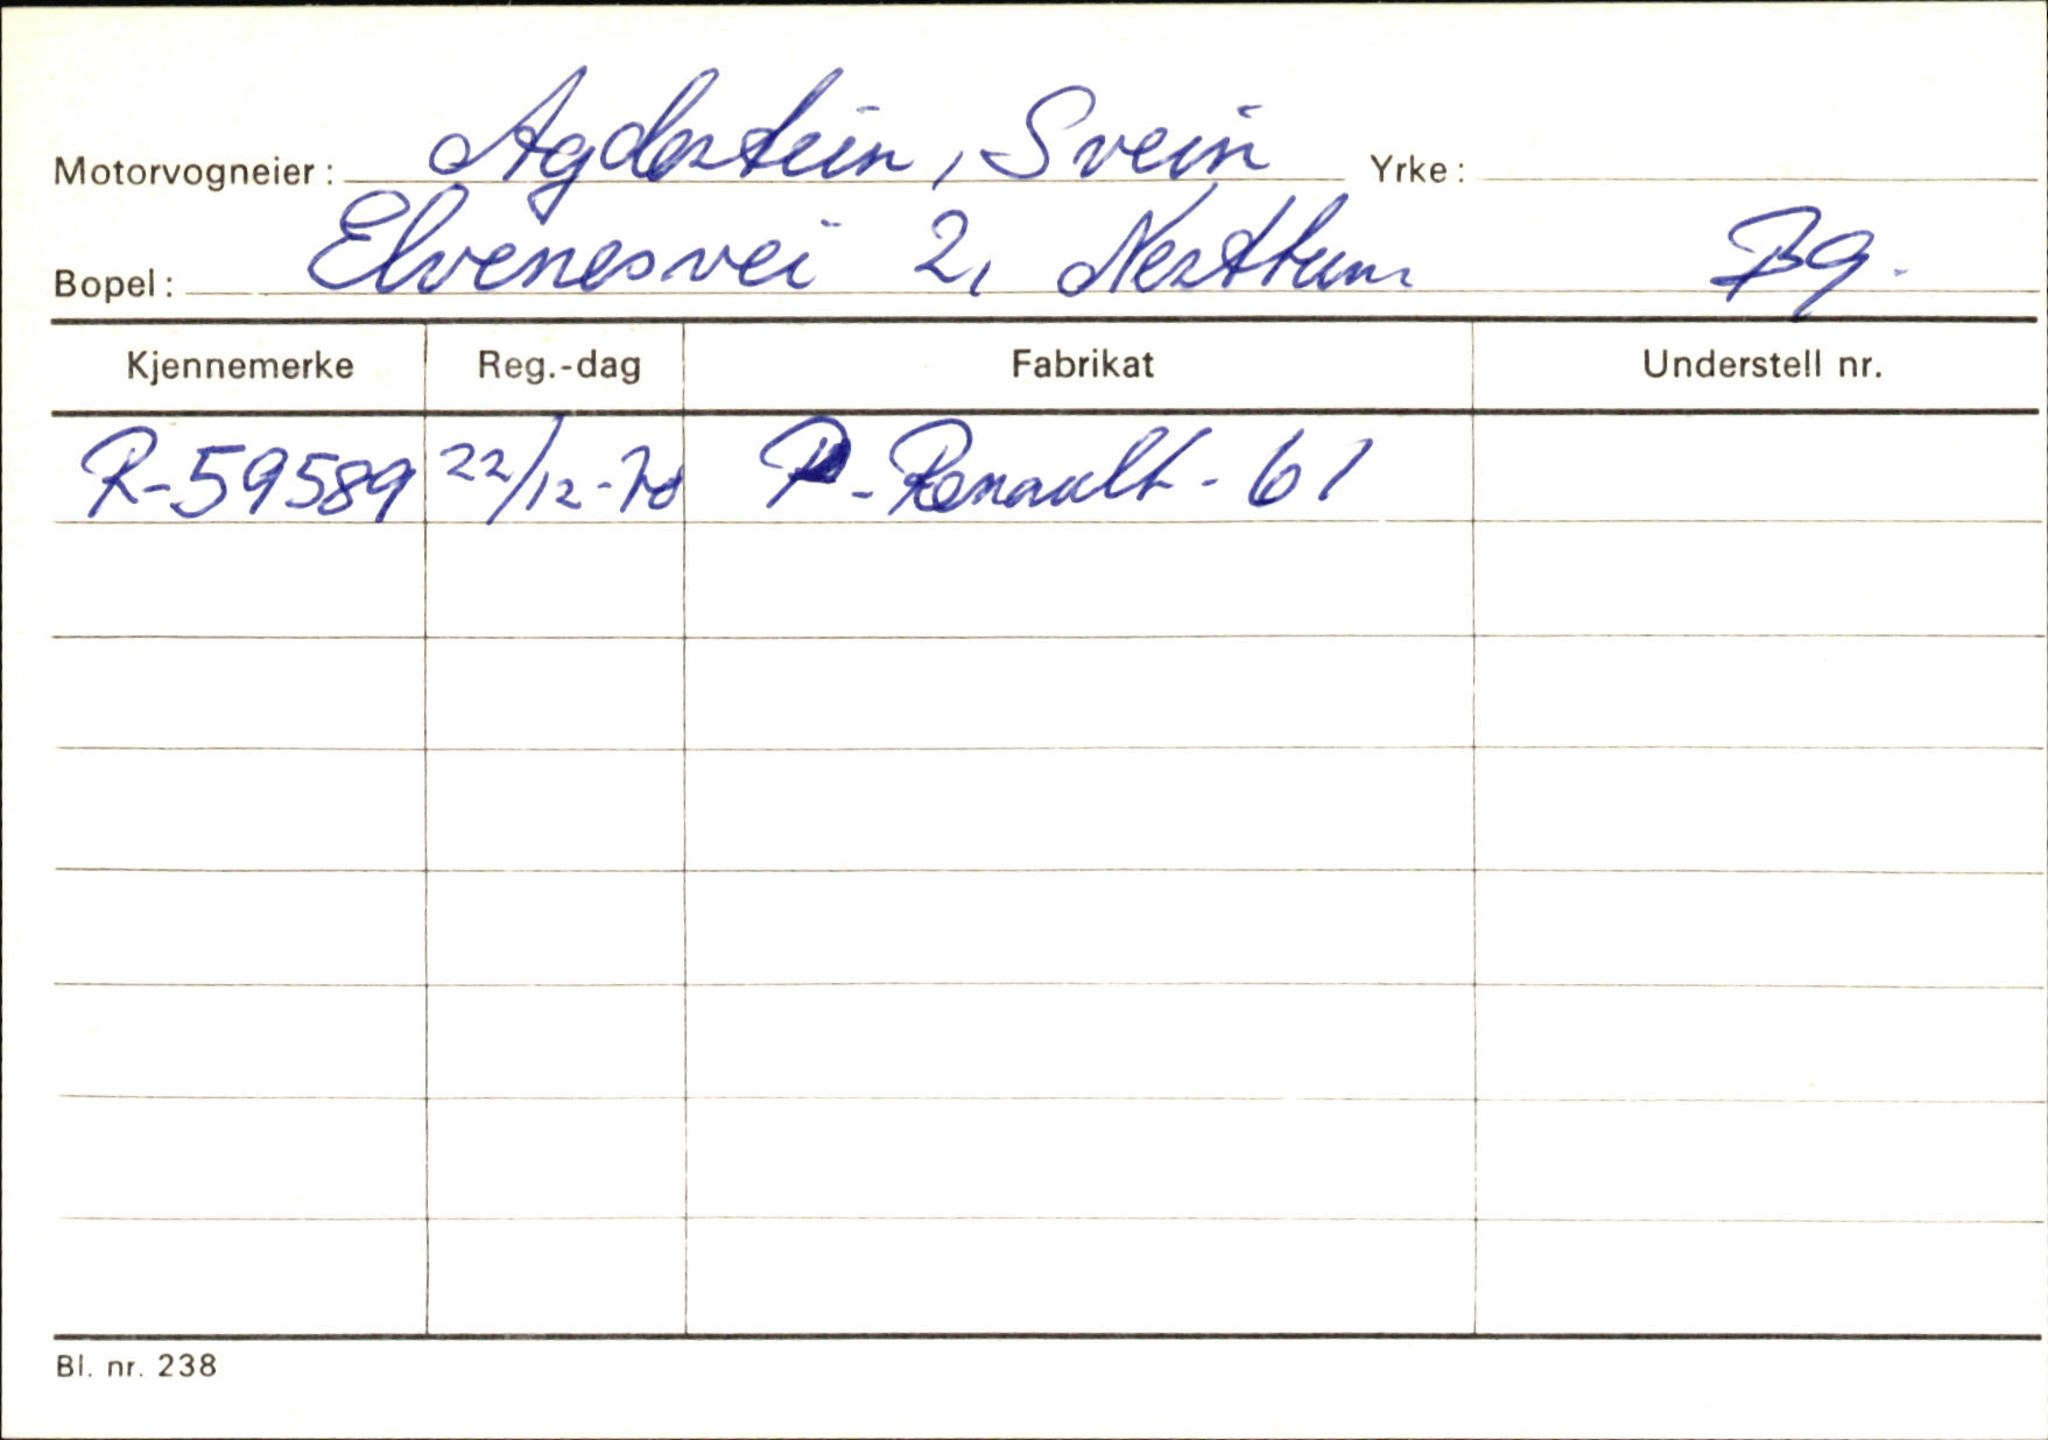 Motorvogneier: Agdestein, Svein Yrke:
Bopel: Elvenesvei 2, Nesttun Bg.
Kjennemerke Reg.-dag Fabrikat Understell nr.
R-59589 22/12-70 P-Renault-61
Bl. nr. 238